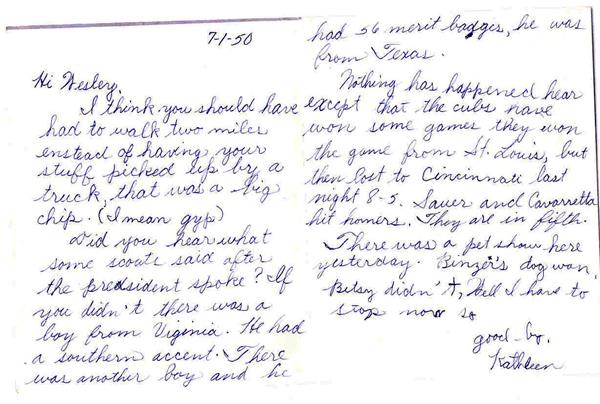 7-1-50
Hi Wesley,
I think you should have
had to walk two miles
instead of having your
stuff picked up by a
truck, that was a big
chip. (I mean gyp)
Did you hear what
some scouts said after
the president spoke? If
you didn't there was a
boy from Viginia. He had
a southern accent. There
was another boy and he
had 56 merit badges, he was
from Texas.
Nothing has happened hear
except that the cubs have
won some games they won
the game from St. Louis, but
then lost to Cincinnati last
night 8-5. Sauer and Cavarretta
hit homers. They are in fifth.
There was a pet show here
yesterday. Binzer's dog won,
Betsy didn't, Well I have to
stop now so
good-by.
Kathleen